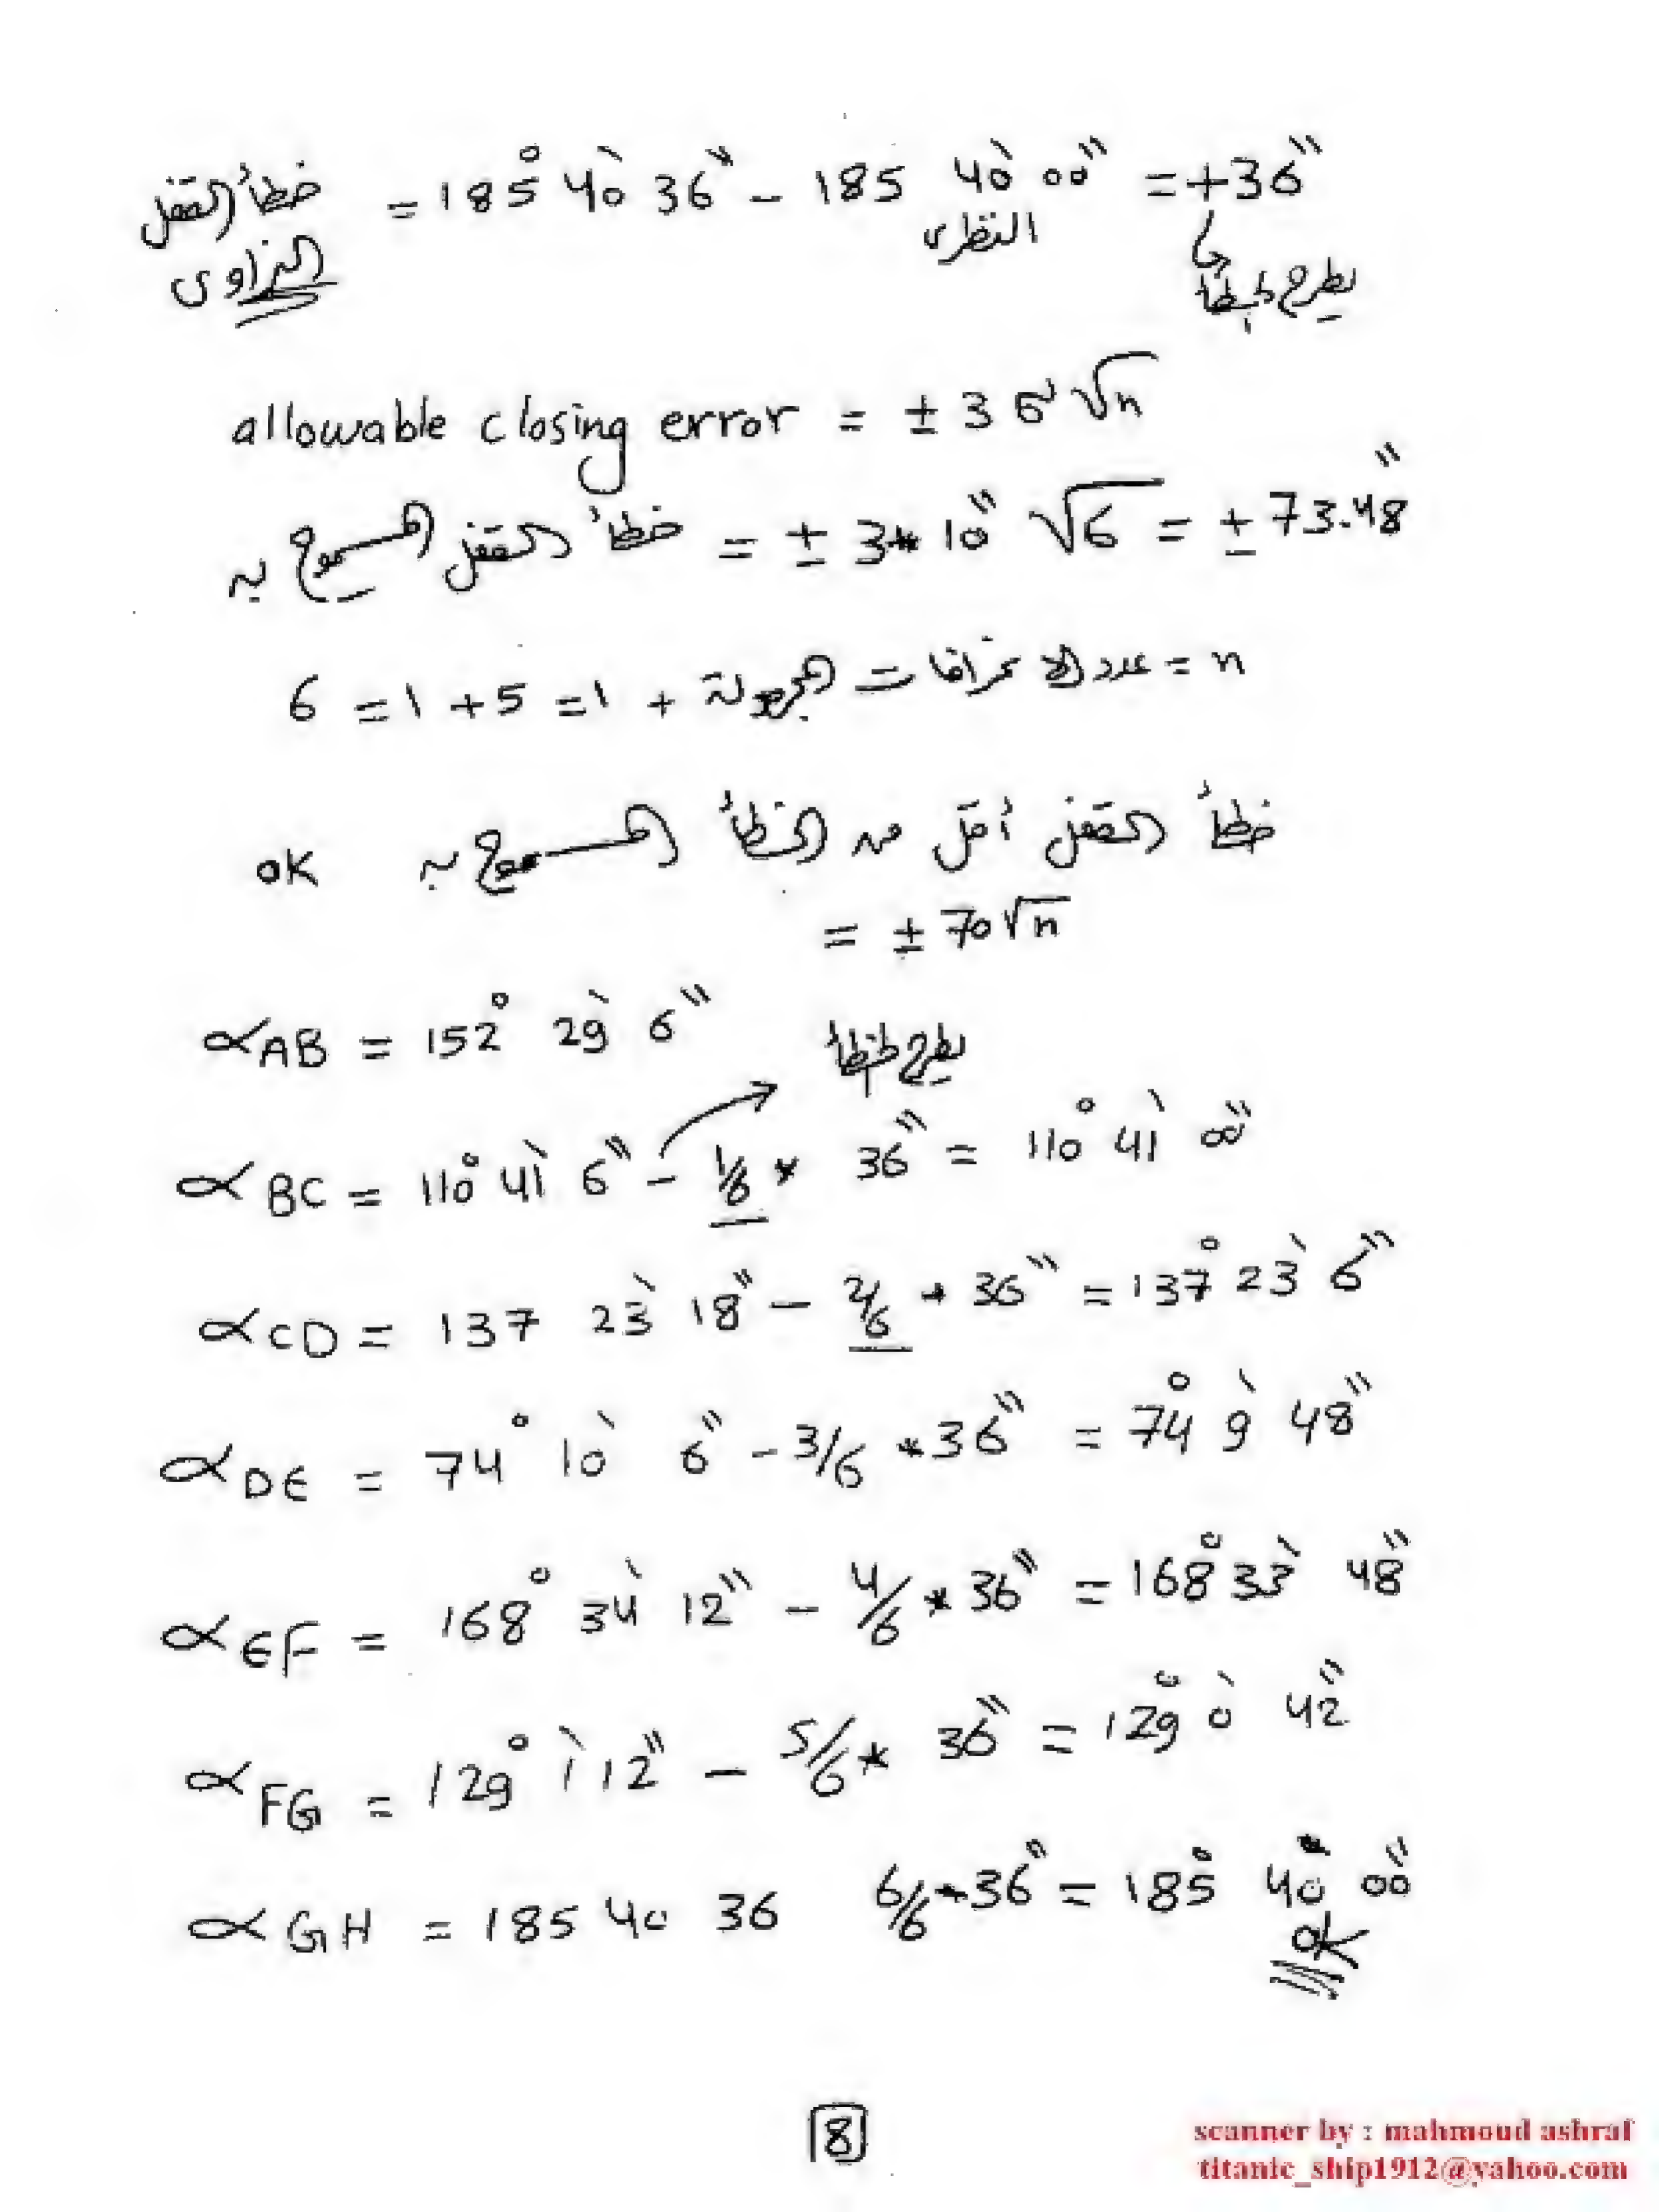 خطأ القفل = 185° 40' 36" - 185 40' 00" = +36"
الزاوى
النظرى
يطرح الخطأ
allowable closing error = ± 3 6" √n
خطأ القفل المسموح به = ± 3* 10" √6 = ± 73.48"
n = عدد الانحرافات المجهولة + 1 = 5 + 1 = 6
خطأ القفل أقل من الخطأ المسموح به ok
= ± 70 √n
∝AB = 152° 29' 6"
يطرح الخطأ
∝BC = 110° 41' 6" - 1/6 * 36" = 110° 41' 00"
∝CD = 137 23' 18" - 2/6 * 36" = 137° 23' 6"
∝DE = 74° 10' 6" - 3/6 * 36" = 74° 9' 48"
∝EF = 168° 34' 12" - 4/6 * 36" = 168° 33' 48"
∝FG = 129° 1' 12" - 5/6 * 36" = 129° 0' 42"
∝GH = 185 40 36 6/6 * 36" = 185° 40' 00"
ok
8
scanner by : mahmoud ashraf
titanic_ship1912@yahoo.com